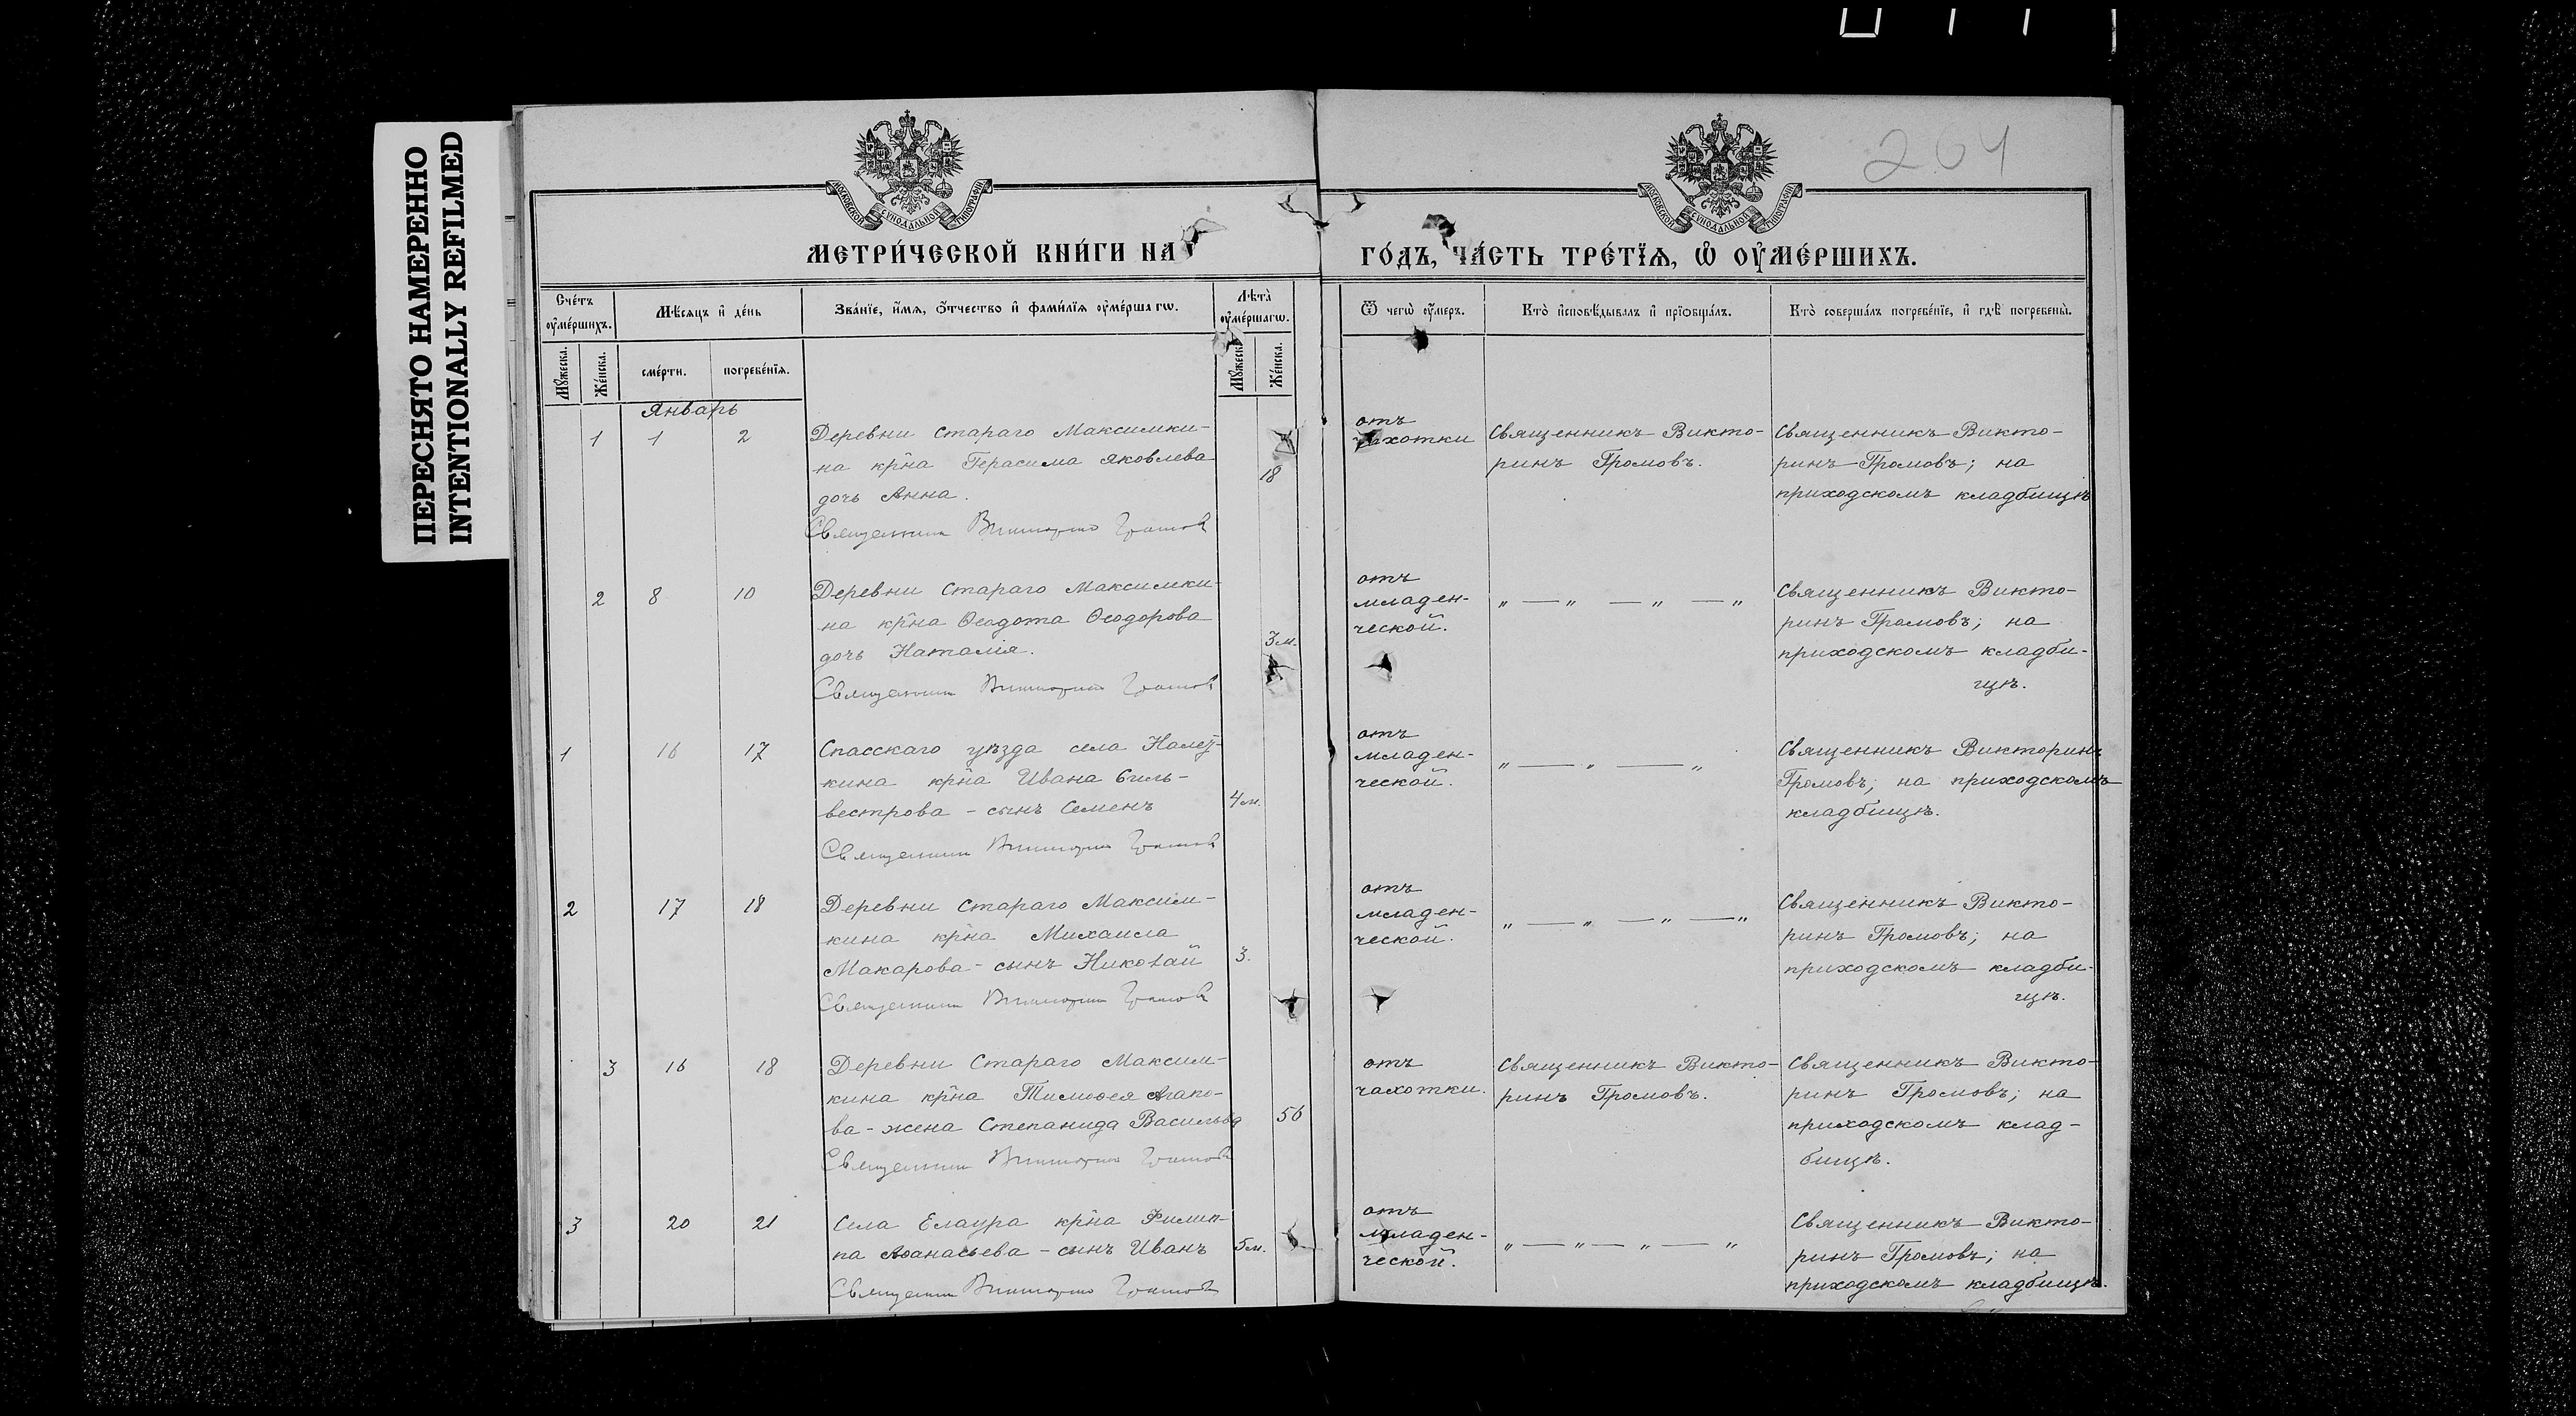 ПЕРЕСНЯТО НАМЕРЕННО
INTENTIONALLY REFILMED
204
МОСКОВСКОЙ СѴНОДАЛЬНОЙ ТИПОГРАФІИ
МОСКОВСКОЙ СѴНОДАЛЬНОЙ ТИПОГРАФІИ
МЕТРИ́ЧЕСКОЙ КНИ́ГИ НА
ГО́ДЪ, ЧА́СТЬ ТРЕ́ТЇѦ, Ѡ҆ ОУ҆МЕ́РШИХЪ.
Сче́тъ оу҆ме́ршихъ.
Мѣ́сяцъ и҆ де́нь
Зва́нїе, и҆́мя, ѻ҆́тчество и҆ фами́лїя оу҆ме́ршагѡ.
Лѣта̀ оу҆ме́ршагѡ.
Ѿ чегѡ̀ оу҆́меръ.
Кто̀ и҆сповѣ́дывалъ и҆ прїѡбща́лъ.
Кто̀ соверша́лъ погребе́нїе, и҆ гдѣ̀ погребены̀.
Мꙋ́жеска.
Же́нска.
сме́рти.
погребе́нїя.
Мꙋ́жеска.
Же́нска.
Январь
1 1 2
Деревни Стараго Максимки-
на кр̃на Герасима Яковлева
дочь Анна.
Священникъ Викторинъ Громовъ
18
отъ
чахотки
Священникъ Викто-
ринъ Громовъ.
Священникъ Викто-
ринъ Громовъ; на
приходскомъ кладбищѣ
2 8 10
Деревни Стараго Максимки-
на кр̃на Ѳеодота Ѳеодорова
дочь Наталія.
Священникъ Викторинъ Громовъ
3 м.
отъ
младен-
ческой.
„ — „ — „ — „
Священникъ Викто-
ринъ Громовъ; на
приходскомъ кладби-
щѣ.
1 16 17
Спасскаго уѣзда села Налет-
кина кр̃на Ивана Силь-
вестрова - сынъ Семенъ
Священникъ Викторинъ Громовъ
4 м.
отъ
младен-
ческой.
„ — „ — „
Священникъ Викторинъ
Громовъ; на приходскомъ
кладбищѣ.
2 17 18
Деревни Стараго Максим-
кина кр̃на Михаила
Макарова - сынъ Николай
Священникъ Викторинъ Громовъ
3.
отъ
младен-
ческой.
„ — „ — „ — „
Священникъ Викто-
ринъ Громовъ; на
приходскомъ кладби-
щѣ.
3 16 18
Деревни Стараго Максим-
кина кр̃на Тимоѳея Агапо-
ва - жена Степанида Васильева
Священникъ Викторинъ Громовъ
56
отъ
чахотки.
Священникъ Викто-
ринъ Громовъ.
Священникъ Викто-
ринъ Громовъ; на
приходскомъ клад-
бищѣ.
3 20 21
Села Елаура кр̃на Филип-
па Аѳанасьева - сынъ Иванъ
Священникъ Викторинъ Громовъ
5 м.
отъ
младен-
ческой.
„ — „ — „ — „
Священникъ Викто-
ринъ Громовъ; на
приходскомъ кладбищѣ.